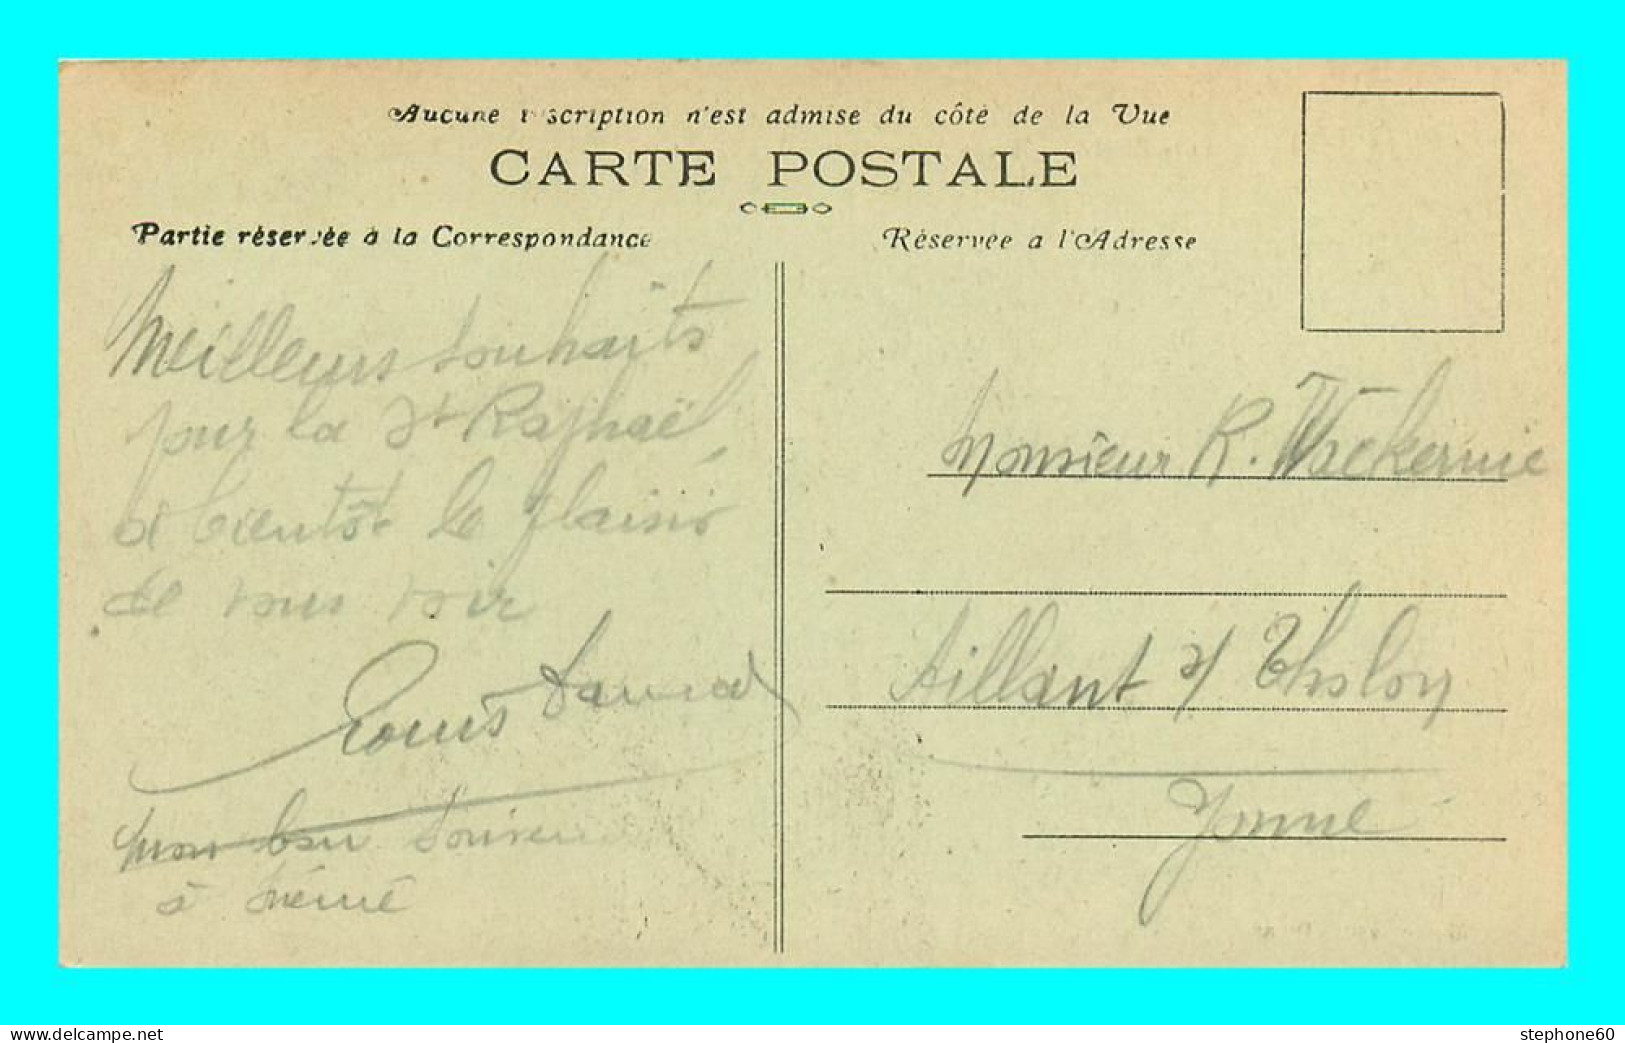 Aucune inscription n'est admise du côté de la Vue
CARTE POSTALE
Partie réservée à la Correspondance
Réservée a l'Adresse
Meilleurs souhaits
pour la St Raphaël,
à bientôt le plaisir
de vous voir
Louis
mon bon souvenir
à
Monsieur R. Wackermie
Aillant s/ Tholon
Yonne
www.delcampe.net
stephone60